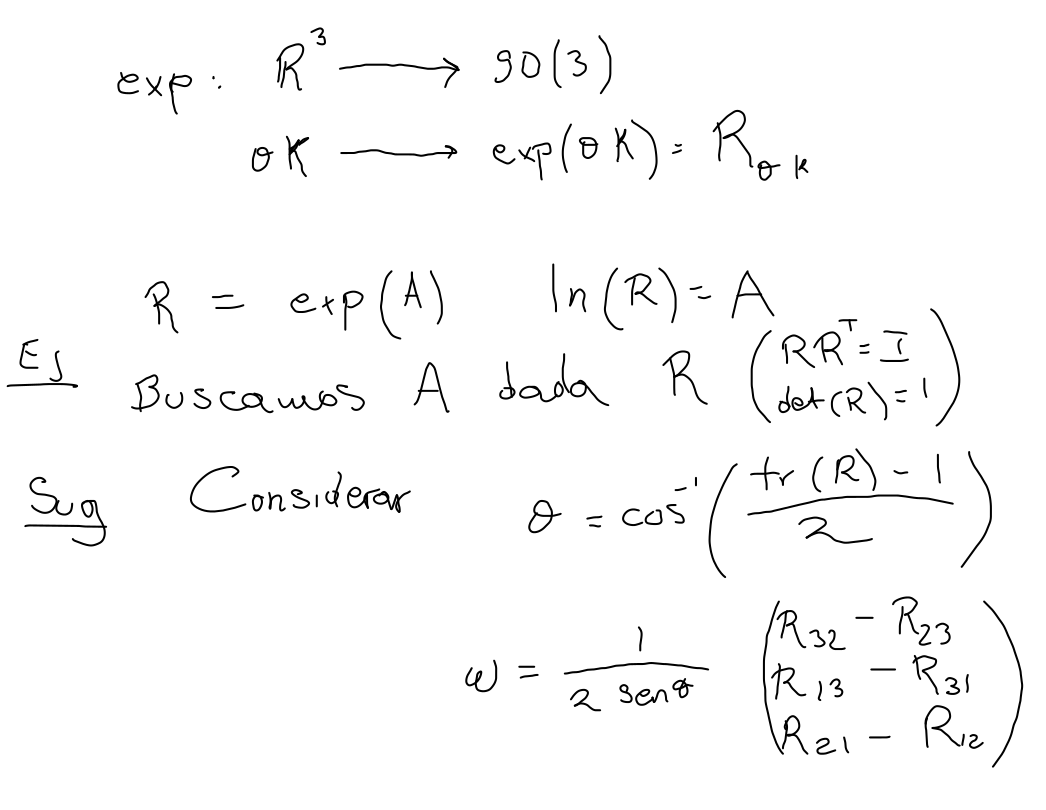 exp: R³ ⟶ SO(3)
θK ⟶ exp(θK) = R_θK
R = exp(A) ln(R) = A
Ej Buscamos A dada R (RRᵀ = I
det(R) = 1)
Sug Considerar θ = cos⁻¹((tr(R) - 1)/2)
ω = 1/(2 senθ) (R₃₂ - R₂₃
R₁₃ - R₃₁
R₂₁ - R₁₂)